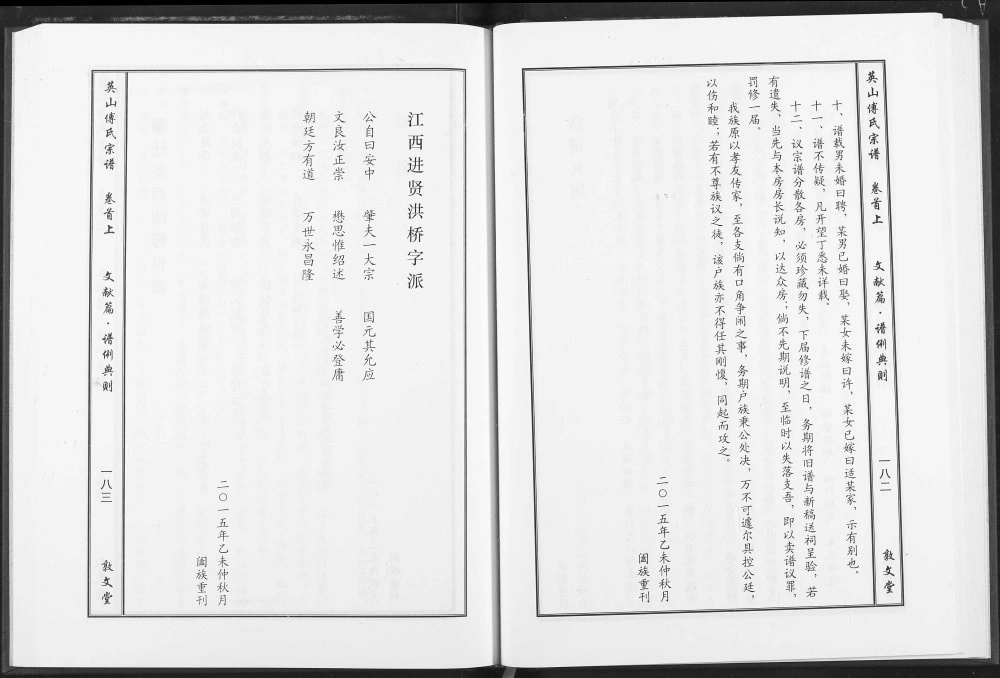 英山傅氏宗谱 卷首上 文献篇·谱例典则 一八二 敦文堂
十、谱载男未婚曰聘，某男已婚曰娶，某女未嫁曰许，某女已嫁曰适某家，示有别也。
十一、谱不传疑，凡开望丁悉未详载。
十二、议宗谱分散各房，必须珍藏勿失，下届修谱之日，务期将旧谱与新稿送祠呈验，若
有遗失，当先与本房房长说知，以达众房；倘不先期说明，至临时以失落支吾，即以卖谱议罪，
罚修一届。
我族原以孝友传家，至各支倘有口角争闹之事，务期户族秉公处决，万不可遽尔具控公廷，
以伤和睦；若有不尊族议之徒，该户族亦不得任其刚愎，同起而攻之。
二〇一五年乙未仲秋月
阖族重刊
江西进贤洪桥字派
公自曰安中 肇夫一大宗 国元其允应
文良汝正崇 懋思惟绍述 善学必登庸
朝廷方有道 万世永昌隆
二〇一五年乙未仲秋月
阖族重刊
英山傅氏宗谱 卷首上 文献篇·谱例典则 一八三 敦文堂